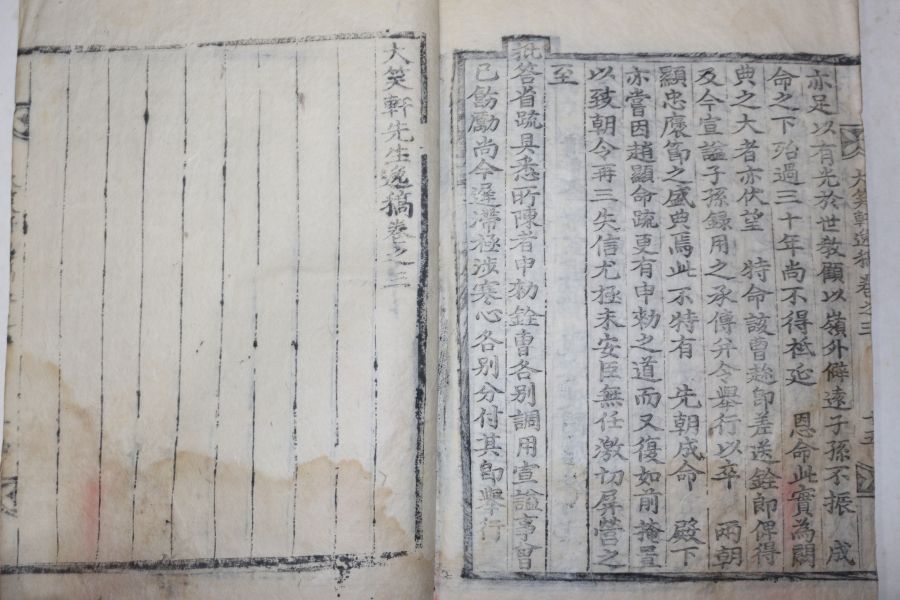 亦足以有光於世教顧以嶺外僻遠子孫不振 成
命之下殆過三十年尚不得祗延 恩命此實為闕
典之大者亦伏望 特命該曹趁即差送銓郎俾得
及今宣諡子孫錄用之承傳弁令舉行以卒 兩朝
顯忠褒節之盛典焉此不特有 先朝成命 殿下
亦嘗因趙顯命疏更有申勑之道而又復如前掩置
以致朝令再三失信尤極未安臣無任激切屏營之
至
批答省疏具悉所陳者申勑銓曹各別調用宣諡事曾
已飭勵尚今遲滯極涉寒心各別分付其即舉行
大笑軒先生逸稿卷之三
大笑軒逸稿卷之三
十五